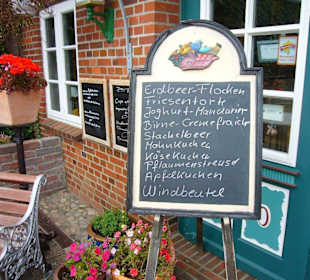 Erdbeer-Flocken
Friesentorte
Joghurt-Mandarin
Birne-Cremefraich
Stachelbeer
Mohnkuchen
Käsekuchen
Pflaumenstreusel
Apfelkuchen
Windbeutel